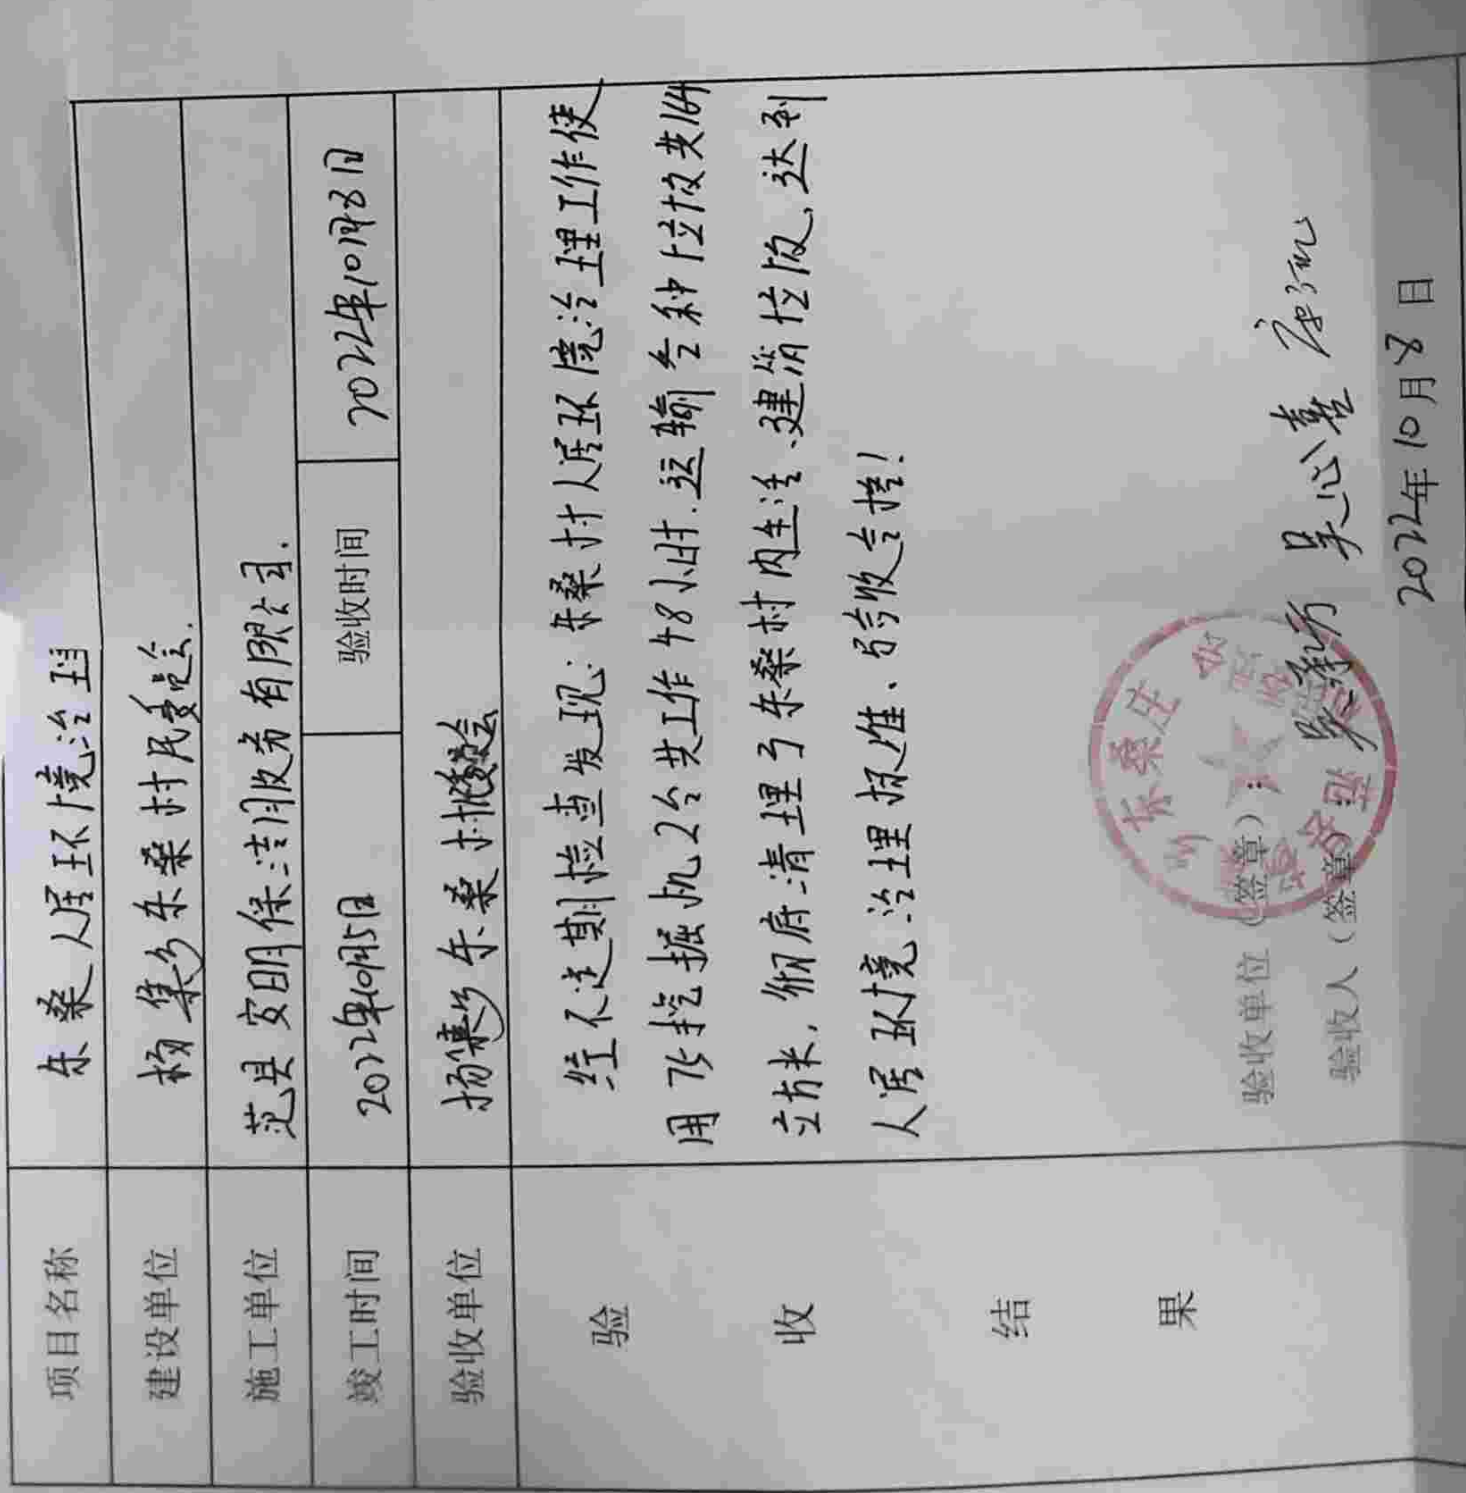 项目名称 东桑人居环境治理
建设单位 杨集乡东桑村民委会.
施工单位 范县安明保洁服务有限公司.
竣工时间 2022年10月5日 验收时间 2022年10月8日
验收单位 杨集乡东桑村村委会
验收结果
经不定期检查发现:东桑村人居环境治理工作使
用75挖掘机2台共工作48小时.运输各种垃圾共164
立方米.彻底清理了东桑村内生活、建筑垃圾,达到
人居环境治理标准、验收合格!
验收单位(签章):
东桑庄
验收人(签章) 吴心喜
2022年10月8日